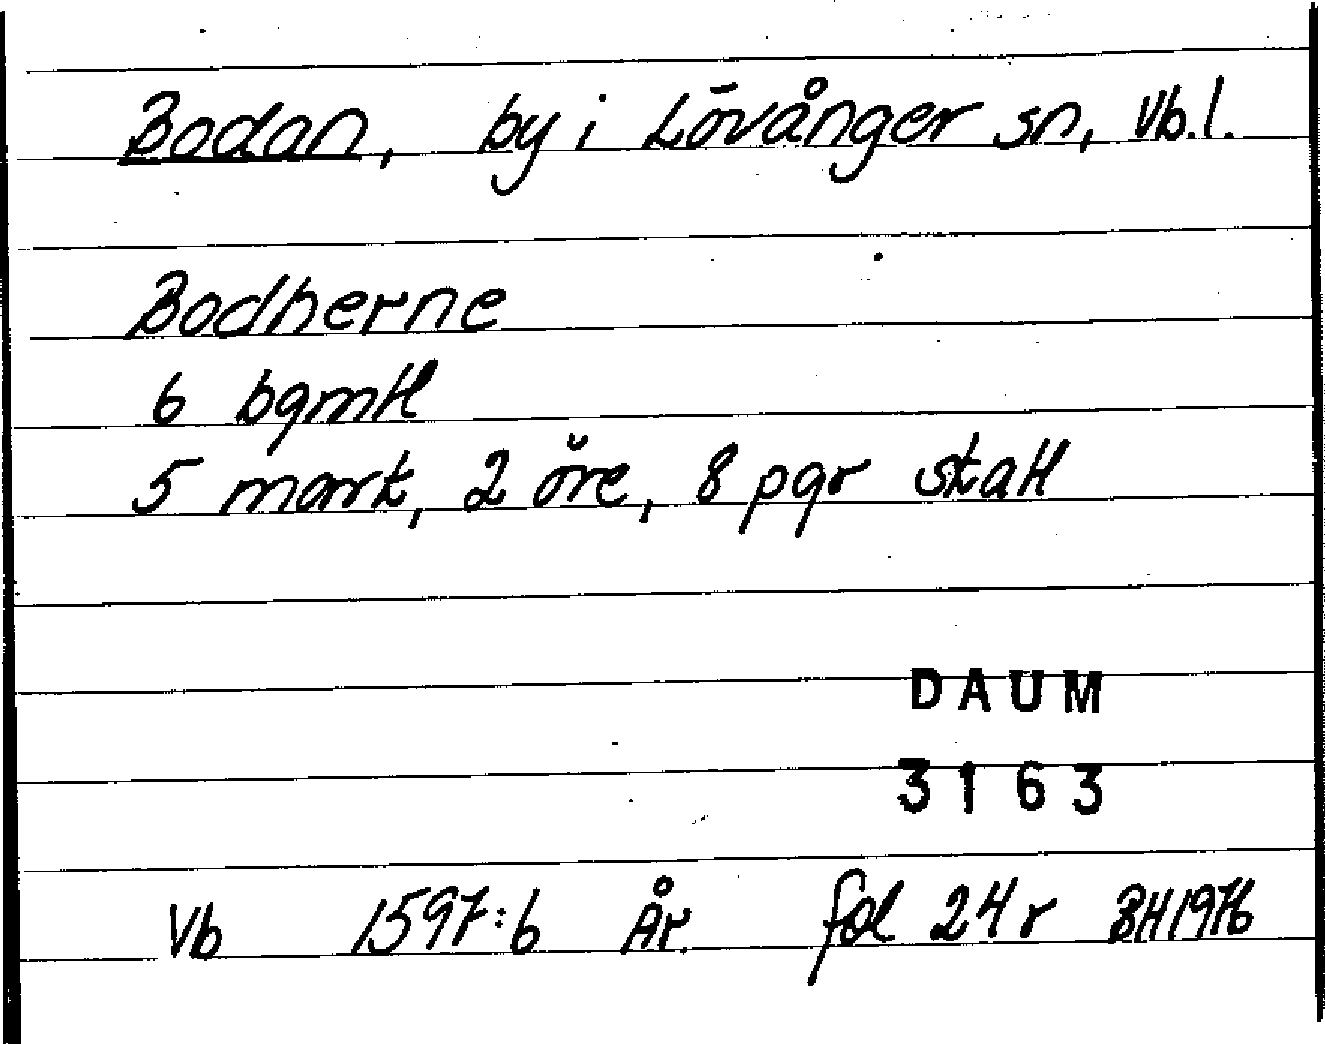 Bodan, by i Lövånger sn, Vb.l.
Bodherne
6 bgmtl
5 mark, 2 öre, 8 pgr skatt
DAUM
3163
Vb 1597:6 År. fol 24 r BH 1976